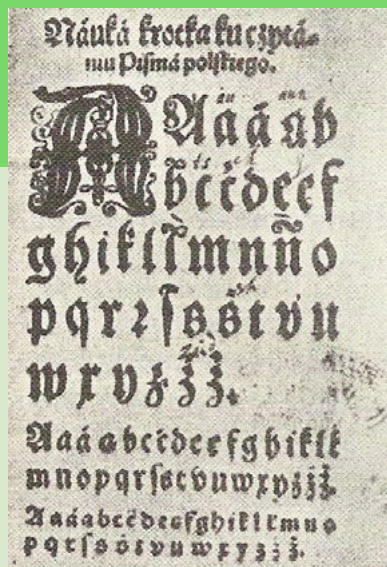 Náuká krotka ku czytá-
niu Pismá polskiego.
A A a á ą b
b́ c ć č d e ę f
g h i k l ł m n ń o
p q r ꝛ ſ s ś t v u
w x y z ź ż.
A a á ą b c ć d e ę f g h i k l ł
m n o p q r ſ s t v u w x y z ź ż.
A a á ą b c ć d e ę f g h i k l ł m n o
p q r ſ s ś t v u w x y z ź ż.